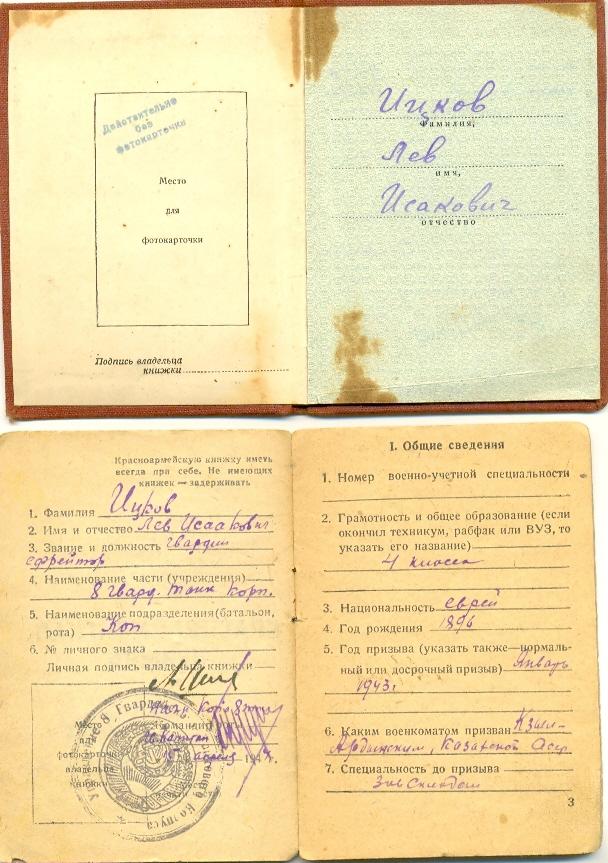 Действительно
без
фотокарточки
Место
для
фотокарточки
Подпись владельца
книжки
Ицков
Фамилия,
Лев
имя,
Исакович
отчество
Красноармейскую книжку иметь
всегда при себе. Не имеющих
книжек — задерживать
1. Фамилия Ицков
2. Имя и отчество Лев Исаакович
3. Звание и должность гвардии
ефрейтор
4. Наименование части (учреждения)
8 гвард. танк корп.
5. Наименование подразделения (батальон,
рота)
6. № личного знака
Личная подпись владельца книжки
Место
для
фотокарточки
владельца
книжки
Командир
15 апреля
части
I. Общие сведения
1. Номер военно-учетной специальности
2. Грамотность и общее образование (если
окончил техникум, рабфак или ВУЗ, то
указать его название)
4 класса
3. Национальность еврей
4. Год рождения 1896
5. Год призыва (указать также—нормаль-
ный или досрочный призыв) Январь
1943г
6. Каким военкоматом призван Кзыл-
Казанской
7. Специальность до призыва
Зав складом
3